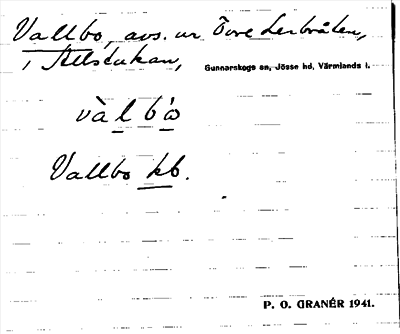 Vallbo, avs. ur Övre Lerbråten,
i Allstakan, Gunnarskogs sn, Jösse hd, Värmlands l.
vàl bò
Vallbo kb.
P. O. GRANÉR 1941.